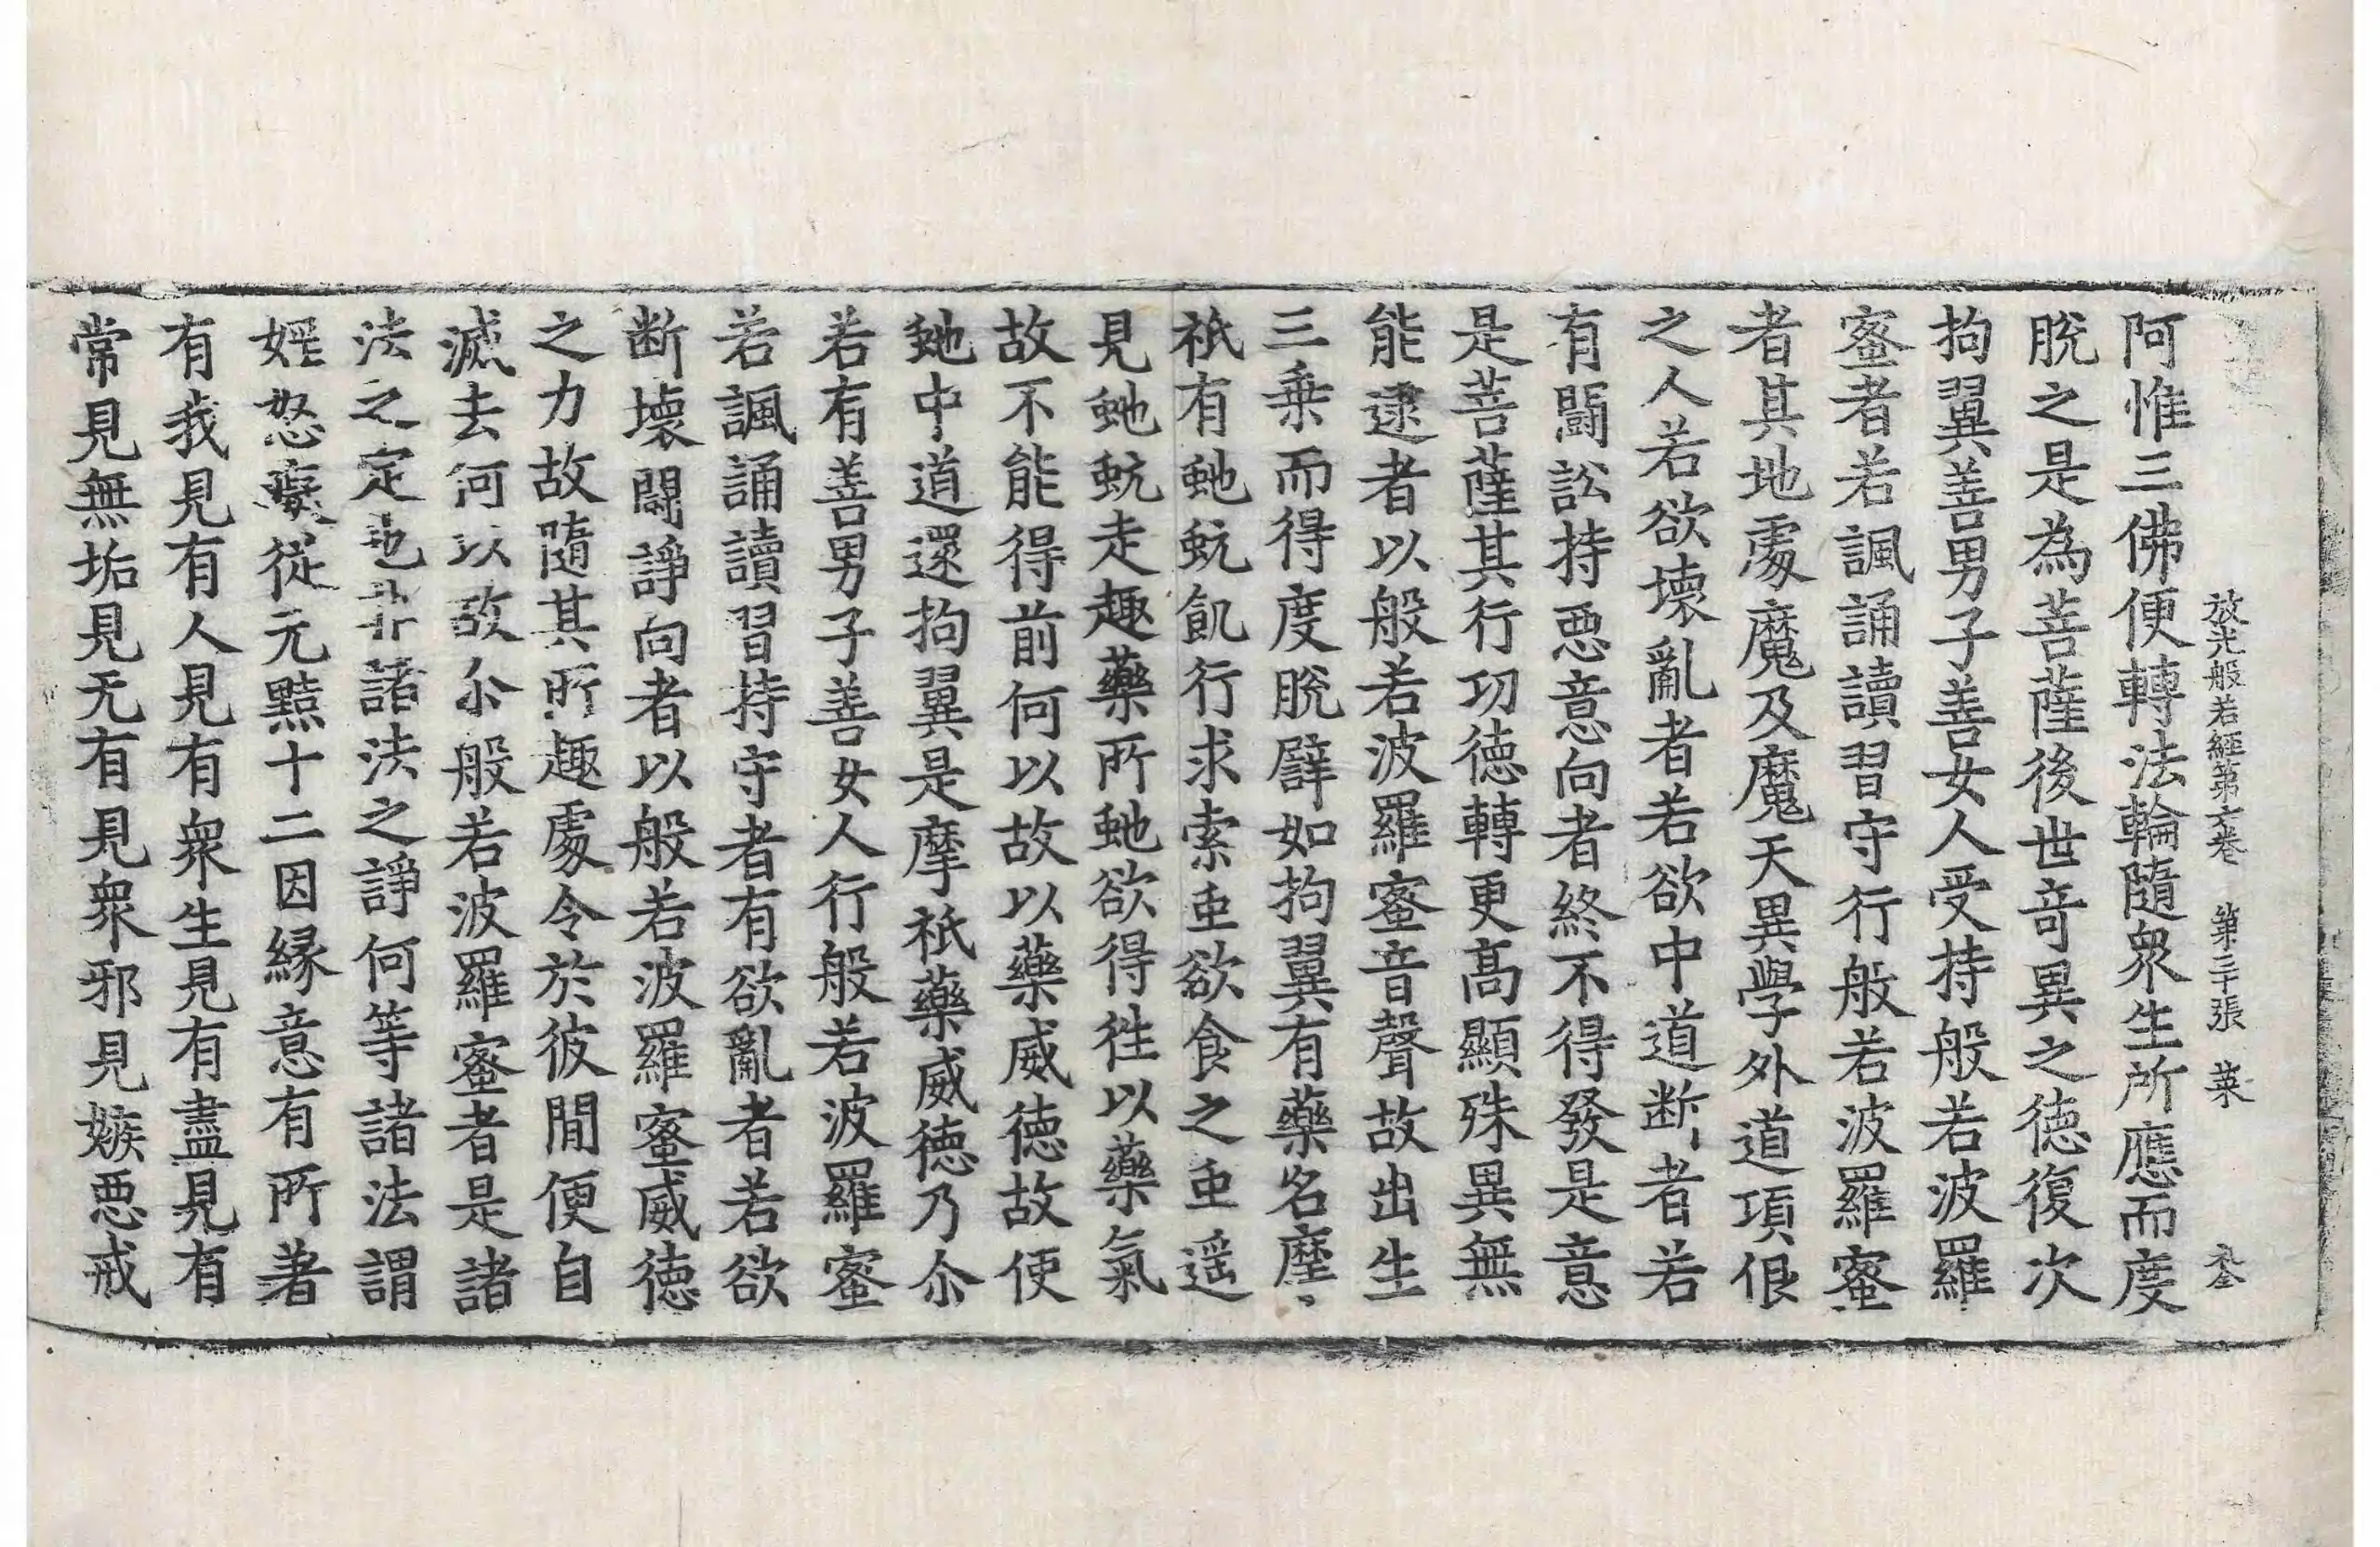 放光般若經第六卷　第三十張　菜
阿惟三佛便轉法輪隨衆生所應而度
脫之是為菩薩後世竒異之德復次
拘翼善男子善女人受持般若波羅
蜜者若諷誦讀習守行般若波羅蜜
者其地處魔及魔天異學外道項佷
之人若欲壞亂者若欲中道断者若
有鬪訟持惡意向者終不得發是意
是菩薩其行功德轉更高顯殊異無
能逮者以般若波羅蜜音聲故出生
三乗而得度脫譬如拘翼有藥名摩
祇有虵蚖飢行求索虫欲食之虫遥
見虵蚖走趣藥所虵欲得徃以藥氣
故不能得前何以故以藥威德故使
虵中道還拘翼是摩祇藥威德乃尒
若有善男子善女人行般若波羅蜜
若諷誦讀習持守者有欲亂者若欲
断壞鬪諍向者以般若波羅蜜威德
之力故隨其所趣處令於彼閒便自
滅去何以故尒般若波羅蜜者是諸
法之定也非諸法之諍何等諸法謂
婬怒癡從元黠十二因緣意有所著
有我見有人見有衆生見有盡見有
常見無垢見无有見衆邪見嫉惡戒